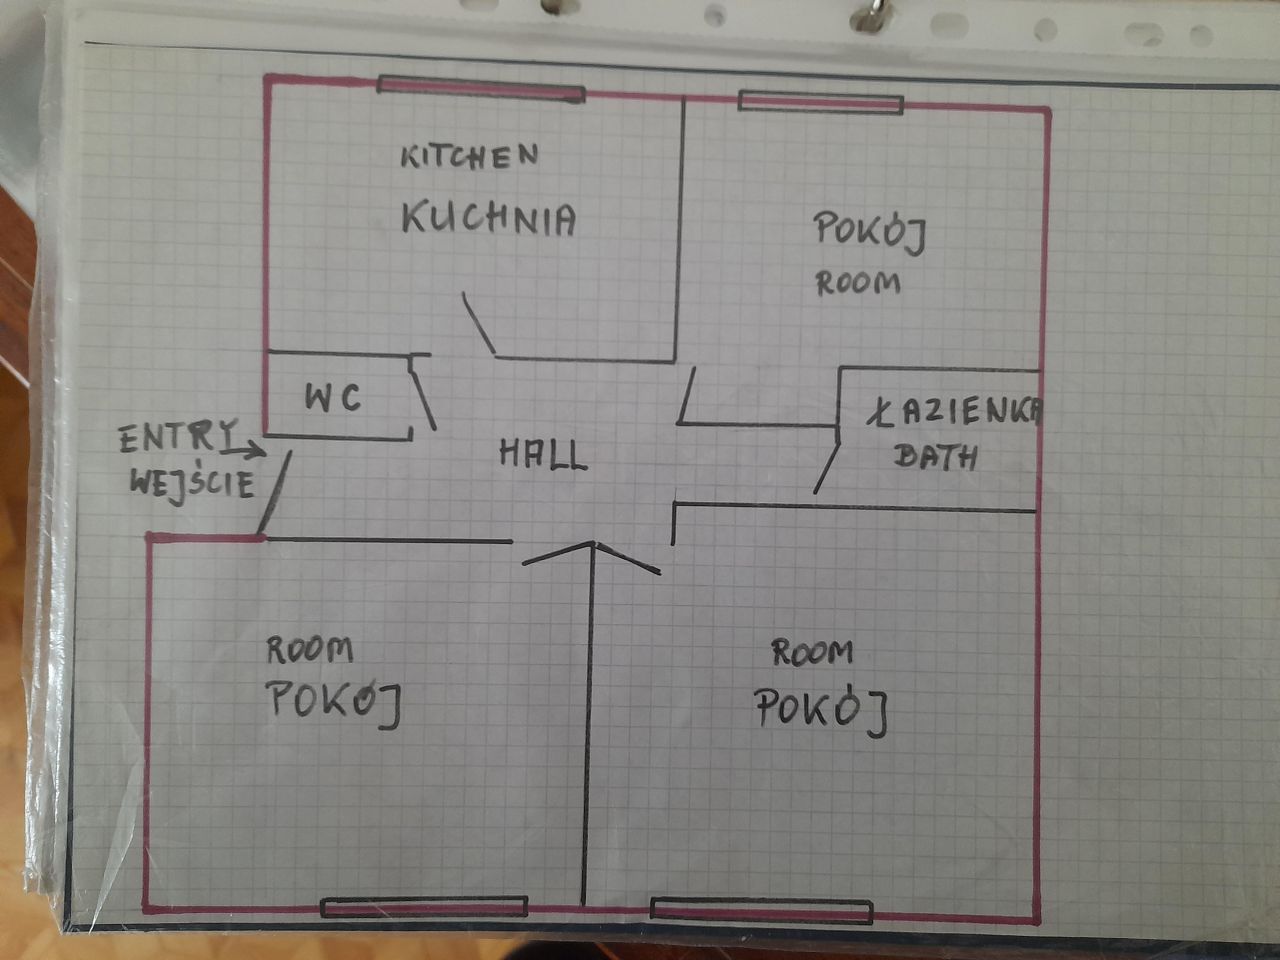 KITCHEN
KUCHNIA
POKÓJ
ROOM
WC
ŁAZIENKA
BATH
ENTRY
WEJŚCIE
HALL
ROOM
POKÓJ
ROOM
POKÓJ